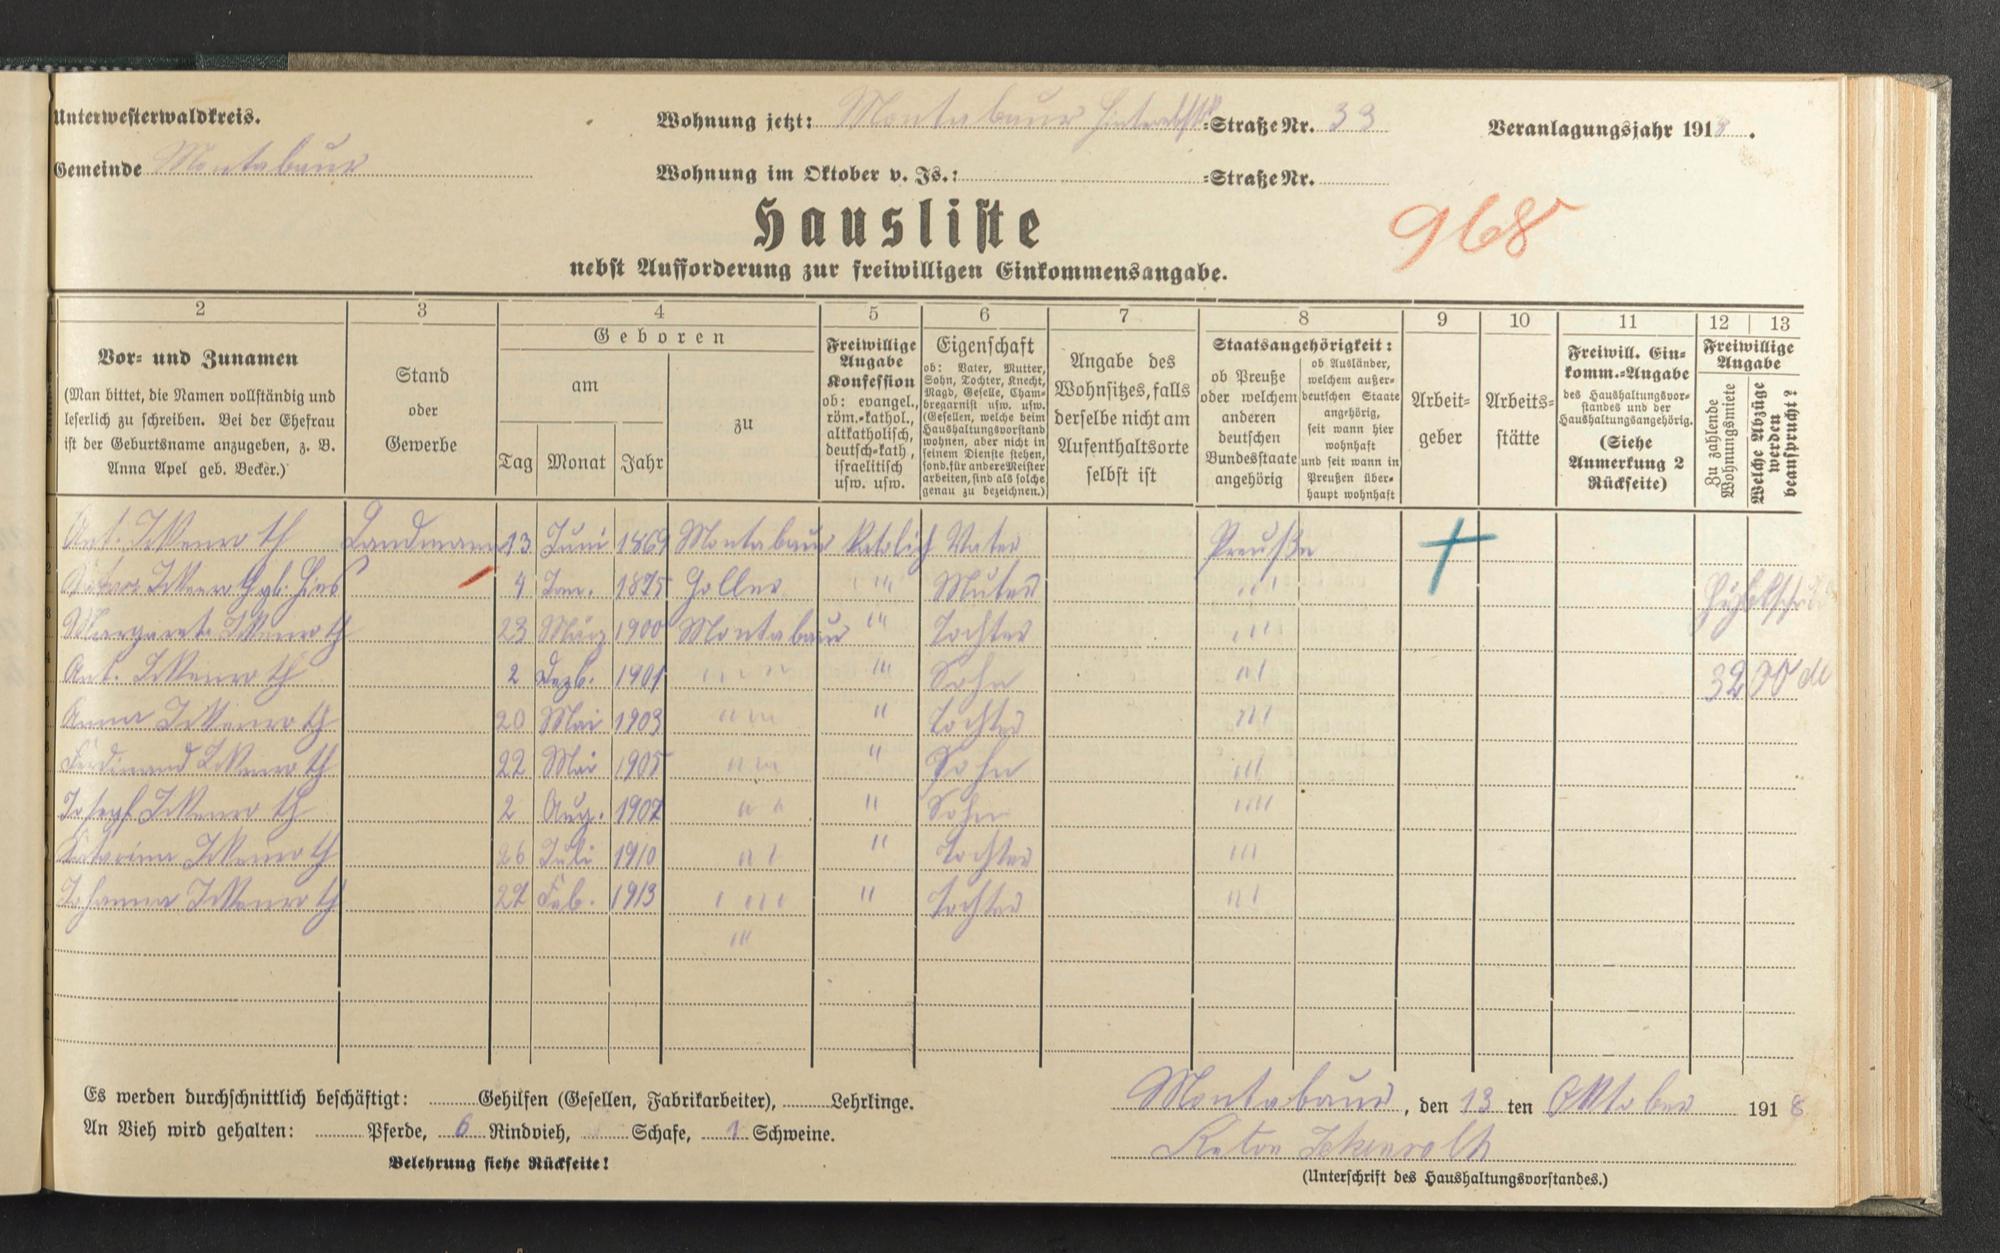 Unterwesterwaldkreis.
Wohnung jetzt: Montabaur =Straße Nr. 33
Veranlagungsjahr 1918.
Gemeinde Montabaur
Wohnung im Oktober v. Js.: =Straße Nr.
Hausliste
968
nebst Aufforderung zur freiwilligen Einkommensangabe.
2 3 4 5 6 7 8 9 10 11 12 13
Vor= und Zunamen
(Man bittet, die Namen vollständig und
leserlich zu schreiben. Bei der Ehefrau
ist der Geburtsname anzugeben, z. B.
Anna Apel geb. Becker.)
Stand
oder
Gewerbe
Geboren
am
Tag Monat Jahr
zu
Freiwillige
Angabe
Konfession
ob: evangel.,
röm.=kathol.,
altkatholisch,
deutsch=kath.,
israelitisch
usw. usw.
Eigenschaft
ob: Vater, Mutter,
Sohn, Tochter, Knecht,
Magd, Geselle, Cham=
bregarnist usw. usw.
(Gesellen, welche beim
Haushaltungsvorstand
wohnen, aber nicht in
seinem Dienste stehen,
sond. für andere Meister
arbeiten, sind als solche
genau zu bezeichnen.)
Angabe des
Wohnsitzes, falls
derselbe nicht am
Aufenthaltsorte
selbst ist
Staatsangehörigkeit:
ob Preuße
oder welchem
anderen
deutschen
Bundesstaate
angehörig
ob Ausländer,
welchem außer=
deutschen Staate
angehörig,
seit wann hier
wohnhaft
und seit wann in
Preußen über=
haupt wohnhaft
Arbeit=
geber
Arbeits=
stätte
Freiwill. Ein=
komm.=Angabe
des Haushaltungsvor=
standes und der
Haushaltungsangehörig.
(Siehe
Anmerkung 2
Rückseite)
Freiwillige
Angabe
Zu zahlende
Wohnungsmiete
Welche Abzüge
werden
beansprucht?
Ant. Ickenroth Landmann 13 Juni 1869 Montabaur Katolich Vater Preuße
Ickenroth gb. 4 Jan. 1875 " " Muter " "
Margareta Ickenroth 23 März 1900 Montabaur " " Tochter " "
Ant. Ickenroth 2 Dezb. 1901 " " " " Sohn " "
Anna Ickenroth 20 Mai 1903 " " " Tochter " "
Ferdinand Ickenroth 22 Mai 1905 " " " Sohn " "
Josepf Ickenroth 2 Aug. 1907 " " " Sohn " "
Katarina Ickenroth 26 Juli 1910 " " " Tochter " "
Johanna Ickenroth 22 Feb. 1913 " " " Tochter " "
" "
Es werden durchschnittlich beschäftigt: Gehilfen (Gesellen, Fabrikarbeiter), Lehrlinge.
An Vieh wird gehalten: Pferde, 6 Rindvieh, Schafe, 1 Schweine.
Belehrung siehe Rückseite!
Montabaur, den 13 ten Oktober 1918
Anton Ickenroth
(Unterschrift des Haushaltungsvorstandes.)